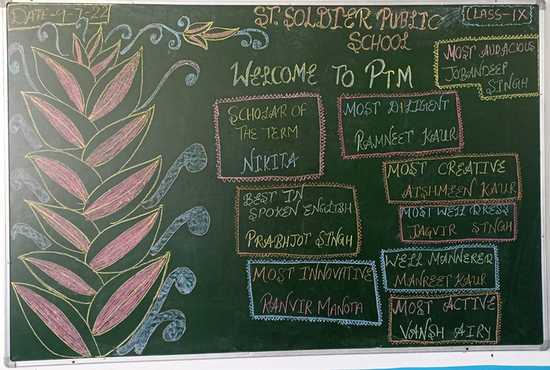 DATE-9-7-22
ST. SOLDIER PUBLIC
SCHOOL
CLASS-IX
WELCOME TO PTM
MOST AUDACIOUS
JOBANDEEP
SINGH
SCHOLAR OF
THE TERM
NIKITA
MOST DILIGENT
RAMNEET KAUR
MOST CREATIVE
JAISHMEEN KAUR
BEST IN
SPOKEN ENGLISH
PRABHJOT SINGH
MOST WELL DRESS
JAGVIR SINGH
WELL MANNERER
MANREET KAUR
MOST INNOVATIVE
RANVIR MANOTA
MOST ACTIVE
VANSH AIRY